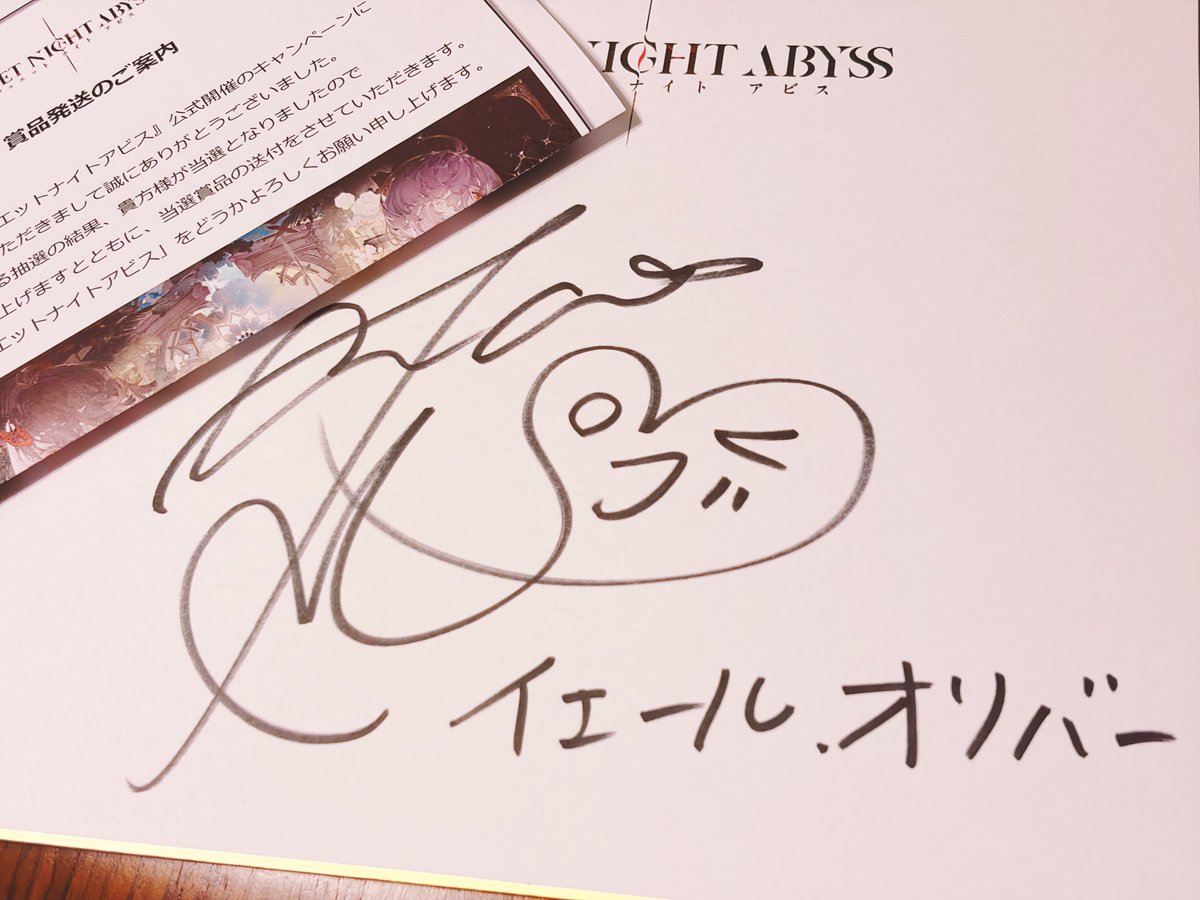 ET NIGHT ABYSS
ナイト アビス
賞品発送のご案内
エットナイトアビス』公式開催のキャンペーンに
ただきまして誠にありがとうございました。
る抽選の結果、貴方様が当選となりましたので
上げますとともに、当選賞品の送付をさせていただきます。
エットナイトアビス」をどうかよろしくお願い申し上げます。
NIGHT ABYSS
ナイト アビス
イエール.オリバー